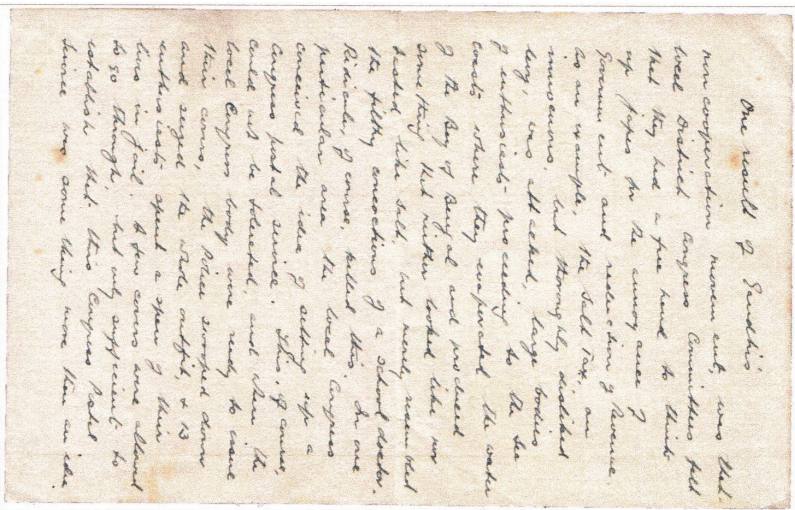 One result of Gandhi's
non cooperation movement, was that
local District Congress Committees felt
that they had a free hand to think
up japes for the annoyance of
Government and reduction of Revenue.
As an example, the Salt Tax, an
innocuous, but thoroughly disliked
levy, was attacked, large bodies
of enthusiasts proceeding to the sea
coasts where they evaporated the water
of the Bay of Bengal and produced
something that neither looked like nor
tasted like salt, but merely resembled
the filthy concoctions of a school doctor.
Ridicule, of course, killed this. In one
particular area the local Congress
conceived the idea of setting up a
Congress postal service. This, of course,
could not be tolerated, and when the
local Congress body were ready to issue
their covers, the Police swooped down
and seized the whole outfit, & 13
enthusiasts spent a span of their
lives in jail. A few covers were allowed
to go through, but only sufficient to
establish that this Congress Postal
Service was something more than an idea.